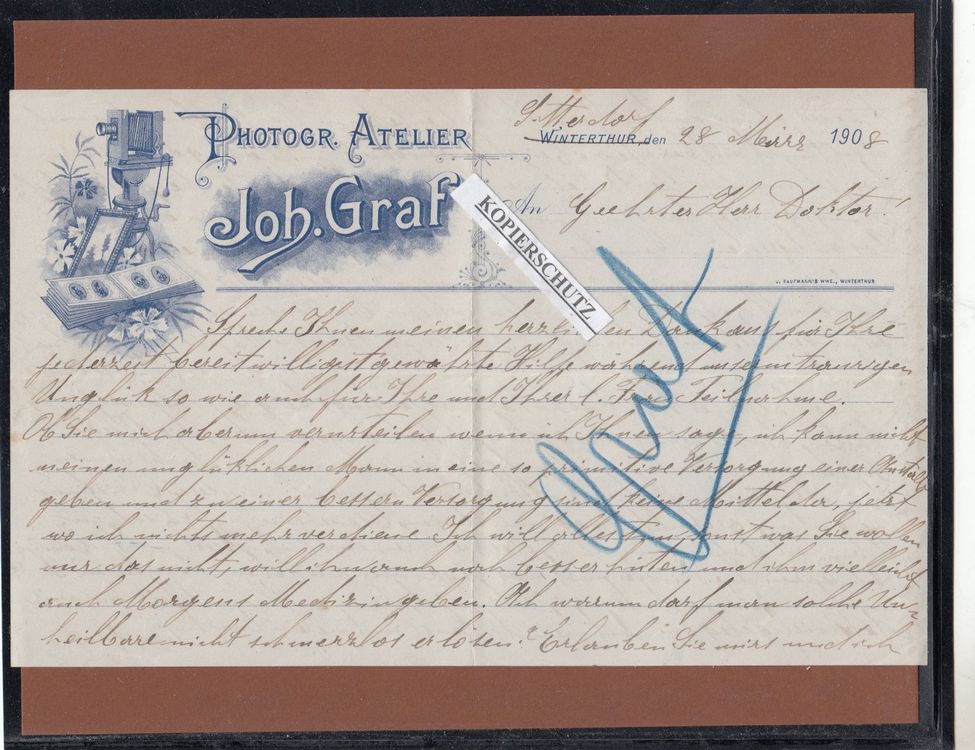 PHOTOGR. ATELIER
Joh. Graf
Sitterdorf
WINTERTHUR, den 28 März 1908
An Geehrter Herr Doktor!
KOPIERSCHUTZ
J. KAUFMANN'S WWE., WINTERTHUR
Spreche Ihnen meinen herzlichen Dank aus für Ihre
jederzeit bereitwilligst gewährte Hilfe während unserm traurigen
Unglük so wie auch für Ihre und Ihrer l. Frau Teilnahme.
Ob Sie mich aber nun verurteilen wenn ich Ihnen sage, ich kann nicht
meinen unglüklichen Mann in eine so primitive Versorgung einer Anstalt
geben und zu einer bessern Versorgung sind keine Mittel da, jetzt
wo ich nichts mehr verdiene Ich will alles tun, sonst was Sie wollen
nur das nicht, will ihn auch noch besser hüten und ihm vielleicht
auch Morgens Medizin geben. Ach warum darf man solche Un-
heilbare nicht schmerzlos erlösen? Erlauben Sie mirs und ich